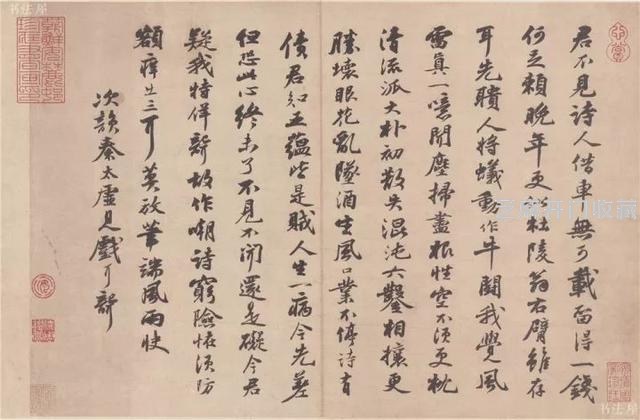 君不見詩人借車無可載留得一錢
何足賴晚年更似杜陵翁右臂雖存
耳先聵人將蟻動作牛鬭我覺風
雷真一噫聞塵掃盡根性空不須更枕
清流派大朴初散失混沌六鑿相攘更
勝壞眼花亂墜酒生風口業不停詩有
債君知五蘊皆是賊人生一病今先差
但恐此心終未了不見不聞還是礙今君
疑我特佯聾故作嘲詩窮險怪須防
額痒出三耳莫放筆端風雨快
次韻秦太虛見戲耳聾
书法屋
书法屋